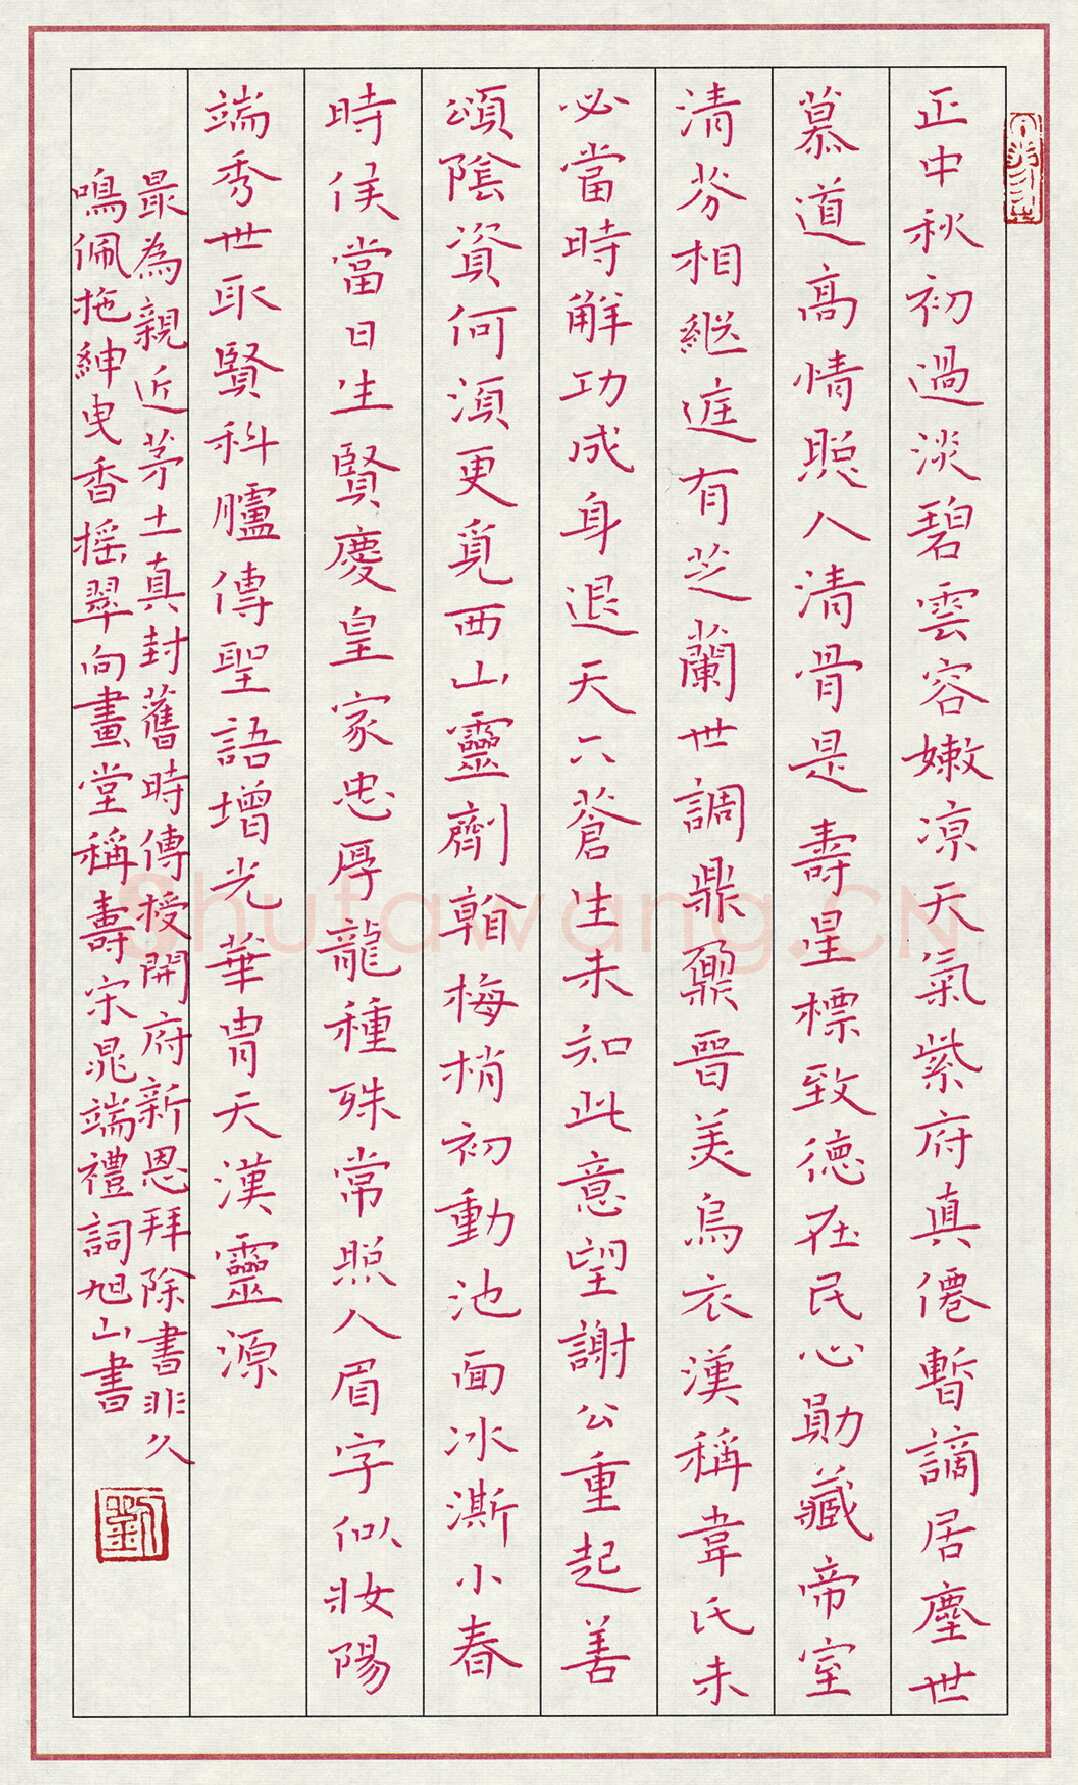 正中秋初過淡碧雲容嫩凉天氣紫府真僊暫謫居塵世
慕道高情照人清骨是壽星標致德在民心勛藏帝室
清芬相繼庭有芝蘭世調鼎鼐晉美烏衣漢稱韋氏未
必當時解功成身退天下蒼生未知此意望謝公重起善
頌陰資何須更覓西山靈劑翰梅梢初動池面冰澌小春
時候當日生賢慶皇家忠厚龍種殊常照人眉宇似妝陽
端秀世取賢科臚傳聖語增光華胄天漢靈源
最為親近茅土真封舊時傳授開府新恩拜除書非久
鳴佩拖紳曳香搖翠向畫堂稱壽宋晁端禮詞旭山書
劉
Shufawang.CN